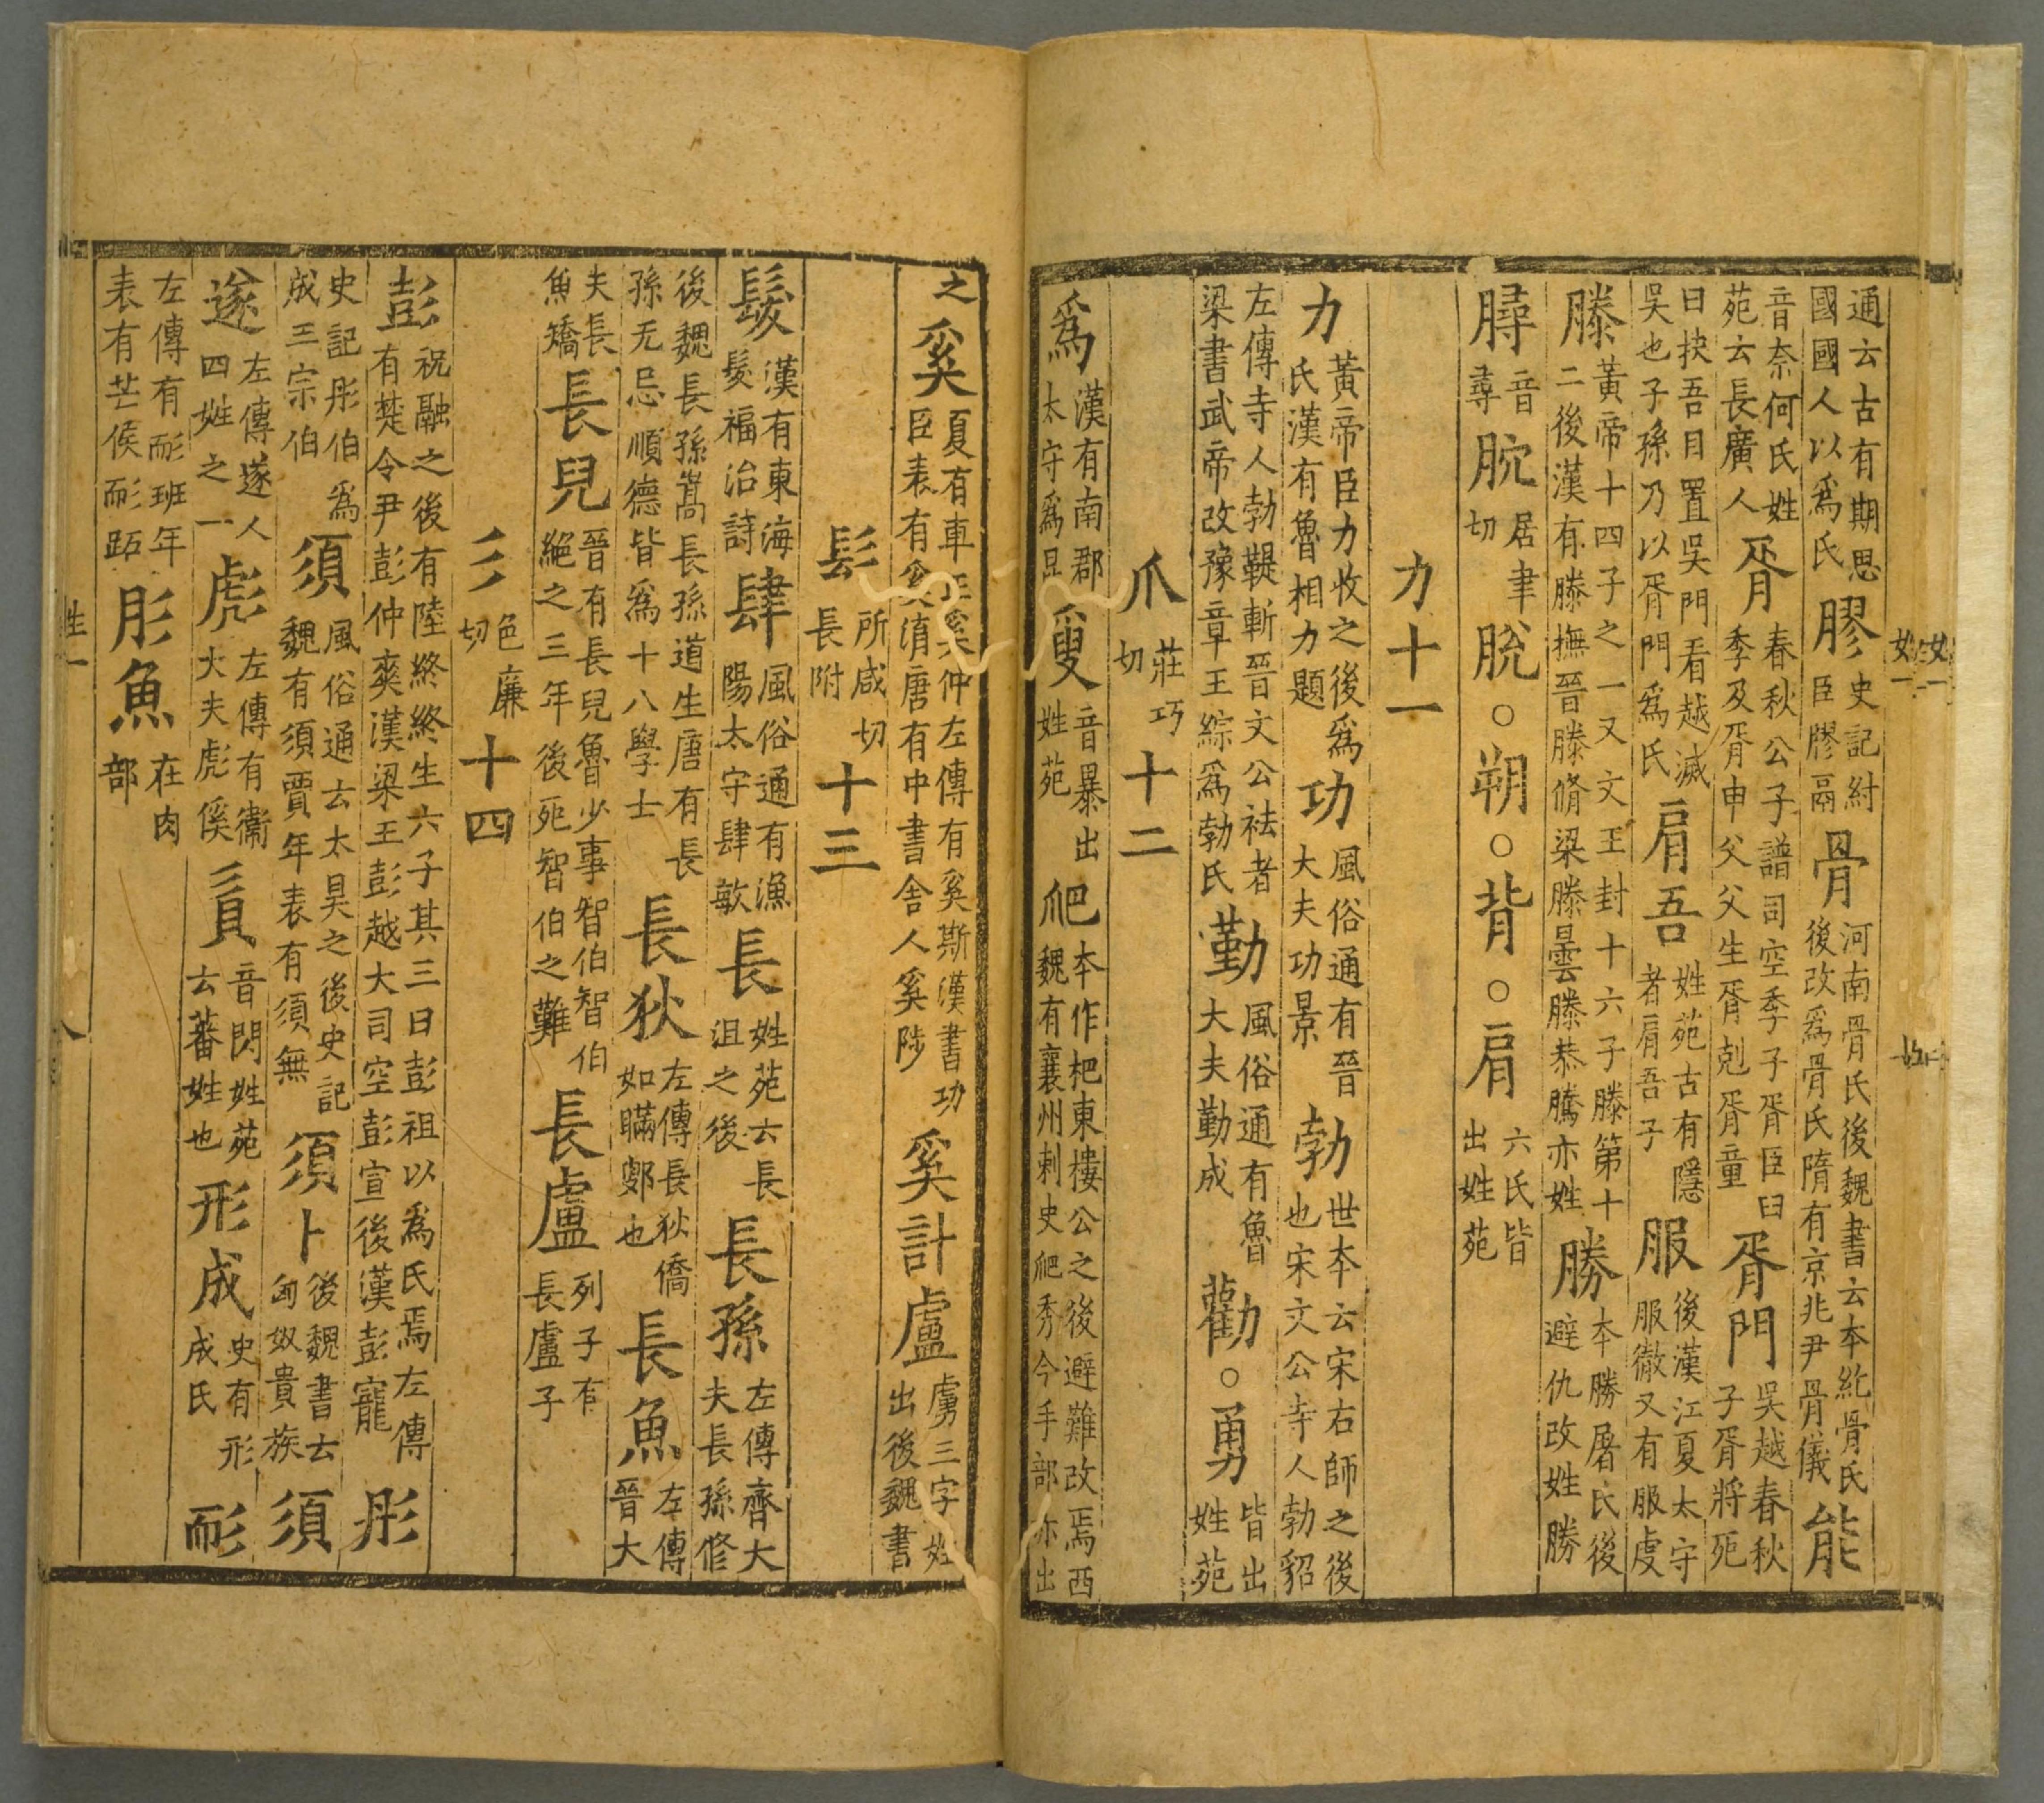 通云古有期思國國人以爲氏膠史記紂臣膠鬲骨河南骨氏後魏書云本紇骨氏後改爲骨氏隋有京兆尹骨儀能
音奈何氏姓苑云長廣人胥春秋公子譜司空季子胥臣曰季及胥申父父生胥剋胥童胥門吳越春秋子胥將死
曰抉吾目置吳門看越滅吳也子孫乃以胥門爲氏肩吾姓苑古有隱者肩吾子服後漢江夏太守服徹又有服虔
滕黃帝十四子之一又文王封十六子滕第十二後漢有滕撫晉滕脩梁滕曇滕恭騰亦姓勝本勝屠氏後避仇改姓勝
音尋居聿切脫○朔○背○肩六氏皆出姓苑
力十一
力黃帝臣力收之後爲氏漢有魯相力題功風俗通有晉大夫功景勃世本云宋右師之後也宋文公寺人勃貂
左傳寺人勃鞮斬晉文公袪者梁書武帝改豫章王綜爲勃氏勤風俗通有魯大夫勤成勸○勇皆出姓苑
爪莊巧切十二
爲漢有南郡太守爲昆叟音暴出姓苑爬本作杷東樓公之後避難改焉西魏有襄州刺史爬秀今手部亦出
之奚夏有車正奚仲左傳有奚斯漢書功臣表有奚涓唐有中書舍人奚陟奚計盧虜三字姓出後魏書
髟所咸切長附十三
髮漢有東海髮福治詩肆風俗通有漁陽太守肆敏長姓苑云長沮之後長孫左傳齊大夫長孫修
後魏長孫嵩長孫道生唐有長孫无忌順德皆爲十八學士長狄左傳長狄僑如瞞鄋也長魚左傳晉大
夫長魚矯長兒晉有長兒魯少事智伯智伯絕之三年後死智伯之難長盧列子有長盧子
彡色廉切十四
彭祝融之後有陸終終生六子其三曰彭祖以爲氏焉左傳有楚令尹彭仲爽漢梁王彭越大司空彭宣後漢彭寵彤
史記彤伯爲成王宗伯須風俗通云太昊之後史記魏有須賈年表有須無須卜後魏書云匈奴貴族須
遂左傳遂人四姓之一彪左傳有衞大夫彪傒貟音閃姓苑云蕃姓也形成史有形成氏耏
左傳有耏班年表有芒侯耏跖彤魚在肉部
姓一
八